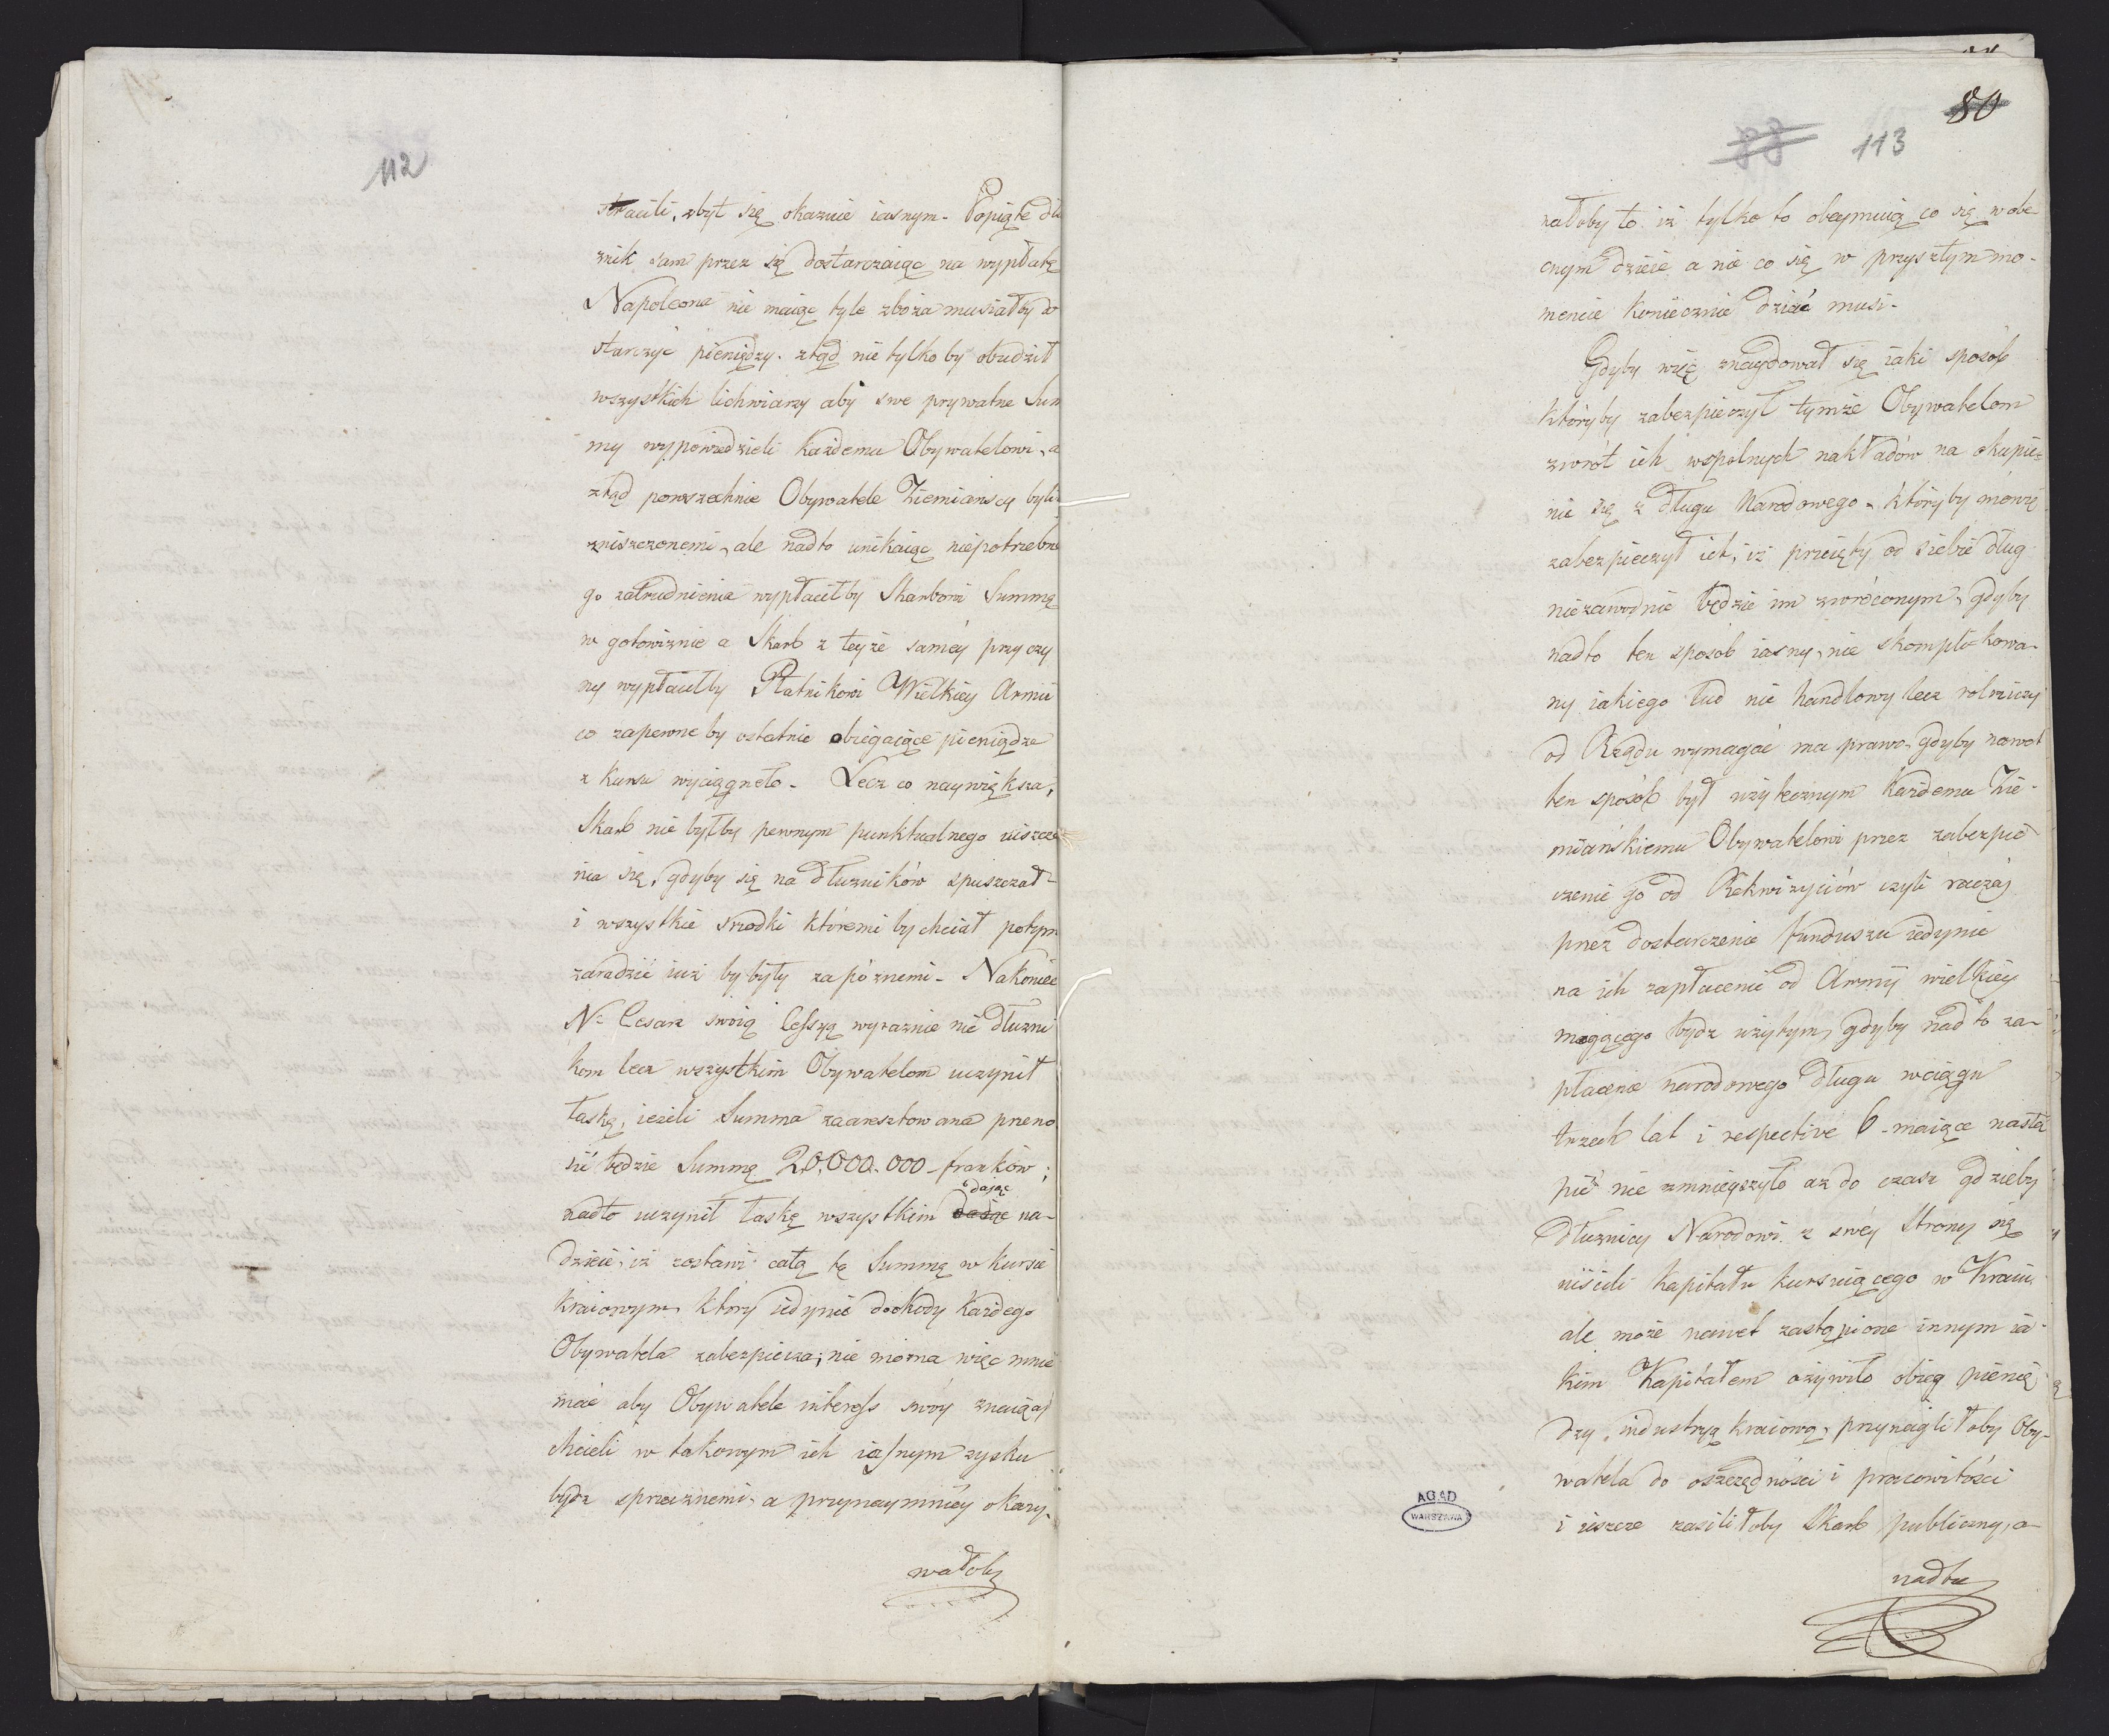 112
stracili, zbyt się okazuie iasnym. Popiąte dłu
żnik sam przez się dostarczaiąc na wypłatę
Napoleona nie maiąc tyle zboża musiałby do
starczyć pieniędzy. ztąd nie tylko by obudził
wszystkich lichwiarzy aby swe prywatne Sum
my wypowiedzieli każdemu Obywatelowi, a
ztąd powszechnie Obywatele Ziemianscy byli
zniszczonemi, ale nadto unikaiąc niepotrzebne
go zatrudnienia wypłaciłby Skarbowi Summę
w gotowiznie a Skarb z teyże saméy przyczy
ny wypłaciłby Płatnikowi Wielkiey Armii
co zapewne by ostatnie obiegaiące pieniądze
z kursu wyciągneło. Lecz co naywiększa,
Skarb nie byłby pewnym punktualnego uiszcze
nia się, gdyby się na dłużników spuszczał
i wszystkie srzodki któremi by chciał potym
zaradzić iuż by były zapóznemi. Nakoniec
N. Cesarz swoią Cessyą wyraznie nie dłużni
kom lecz wszystkim Obywatelom uczynił
łaskę, ieżeli Summa zaaresztowana przeno
sić będzie Summę 20,000.000 franków;
nadto uczynił łaskę wszystkim dając na-
dzieię, iż zostawi całą tę Summę w kursie
kraiowym, który iedynie dochody każdego
Obywatela zabezpiecza; nie można więc mnie
mać aby Obywatele interess swóy znaiąc
chcieli w takowym ich iasnym zysku
bydz sprzecznemi, a przynaymniéy okazy-
wałoby
80
88 113
załoby to iż tylko to obeymuią co się w obe-
cnym dzieie a nie co się w przyszłym mo-
mencie koniecznie dziać musi.
Gdyby więc znaydował się iaki sposób
któryby zabezpieczył tymże Obywatelom
zwrót ich wspolnych nakładów na okupie-
nie się z długu Narodowego, któryby mówię
zabezpieczył ich, iż przeięty od siebie dług
niezawodnie będzie im zwróconym, gdyby
nadto ten sposób iasny, nie skompli-kowa-
ny iakiego lud nie handlowy lecz rolniczy
od Rządu wymagać ma prawo, gdyby nawet
ten sposób był użytecznym każdemu Zie-
miańskiemu Obywatelowi przez zabezpie
czenie go od Rekwizyciów czyli raczéj
przez dostarczenie funduszu iedynie
na ich zapłacenie od Armij wielkiey
mogącego bydz użytym, gdyby nadto za-
płacenie narodowego długu wciągu
trzech lat i respective 6. maiące nastą
pić nie zmnieyszyło aż do czasu gdzieby
dłużnicy Narodowi z swéy Strony się
uiścili kapitału kursuiącego w Kraiu
ale może nawet zastąpione innym ia-
kim Kapitałem ożywiło obieg pienię
dzy, industryą kraiową, przynaglił oby Oby-
watela do oszczędności i pracowitości
i ieszcze zasiliłoby Skarb publiczny, a
nadto
AGAD
WARSZAWA